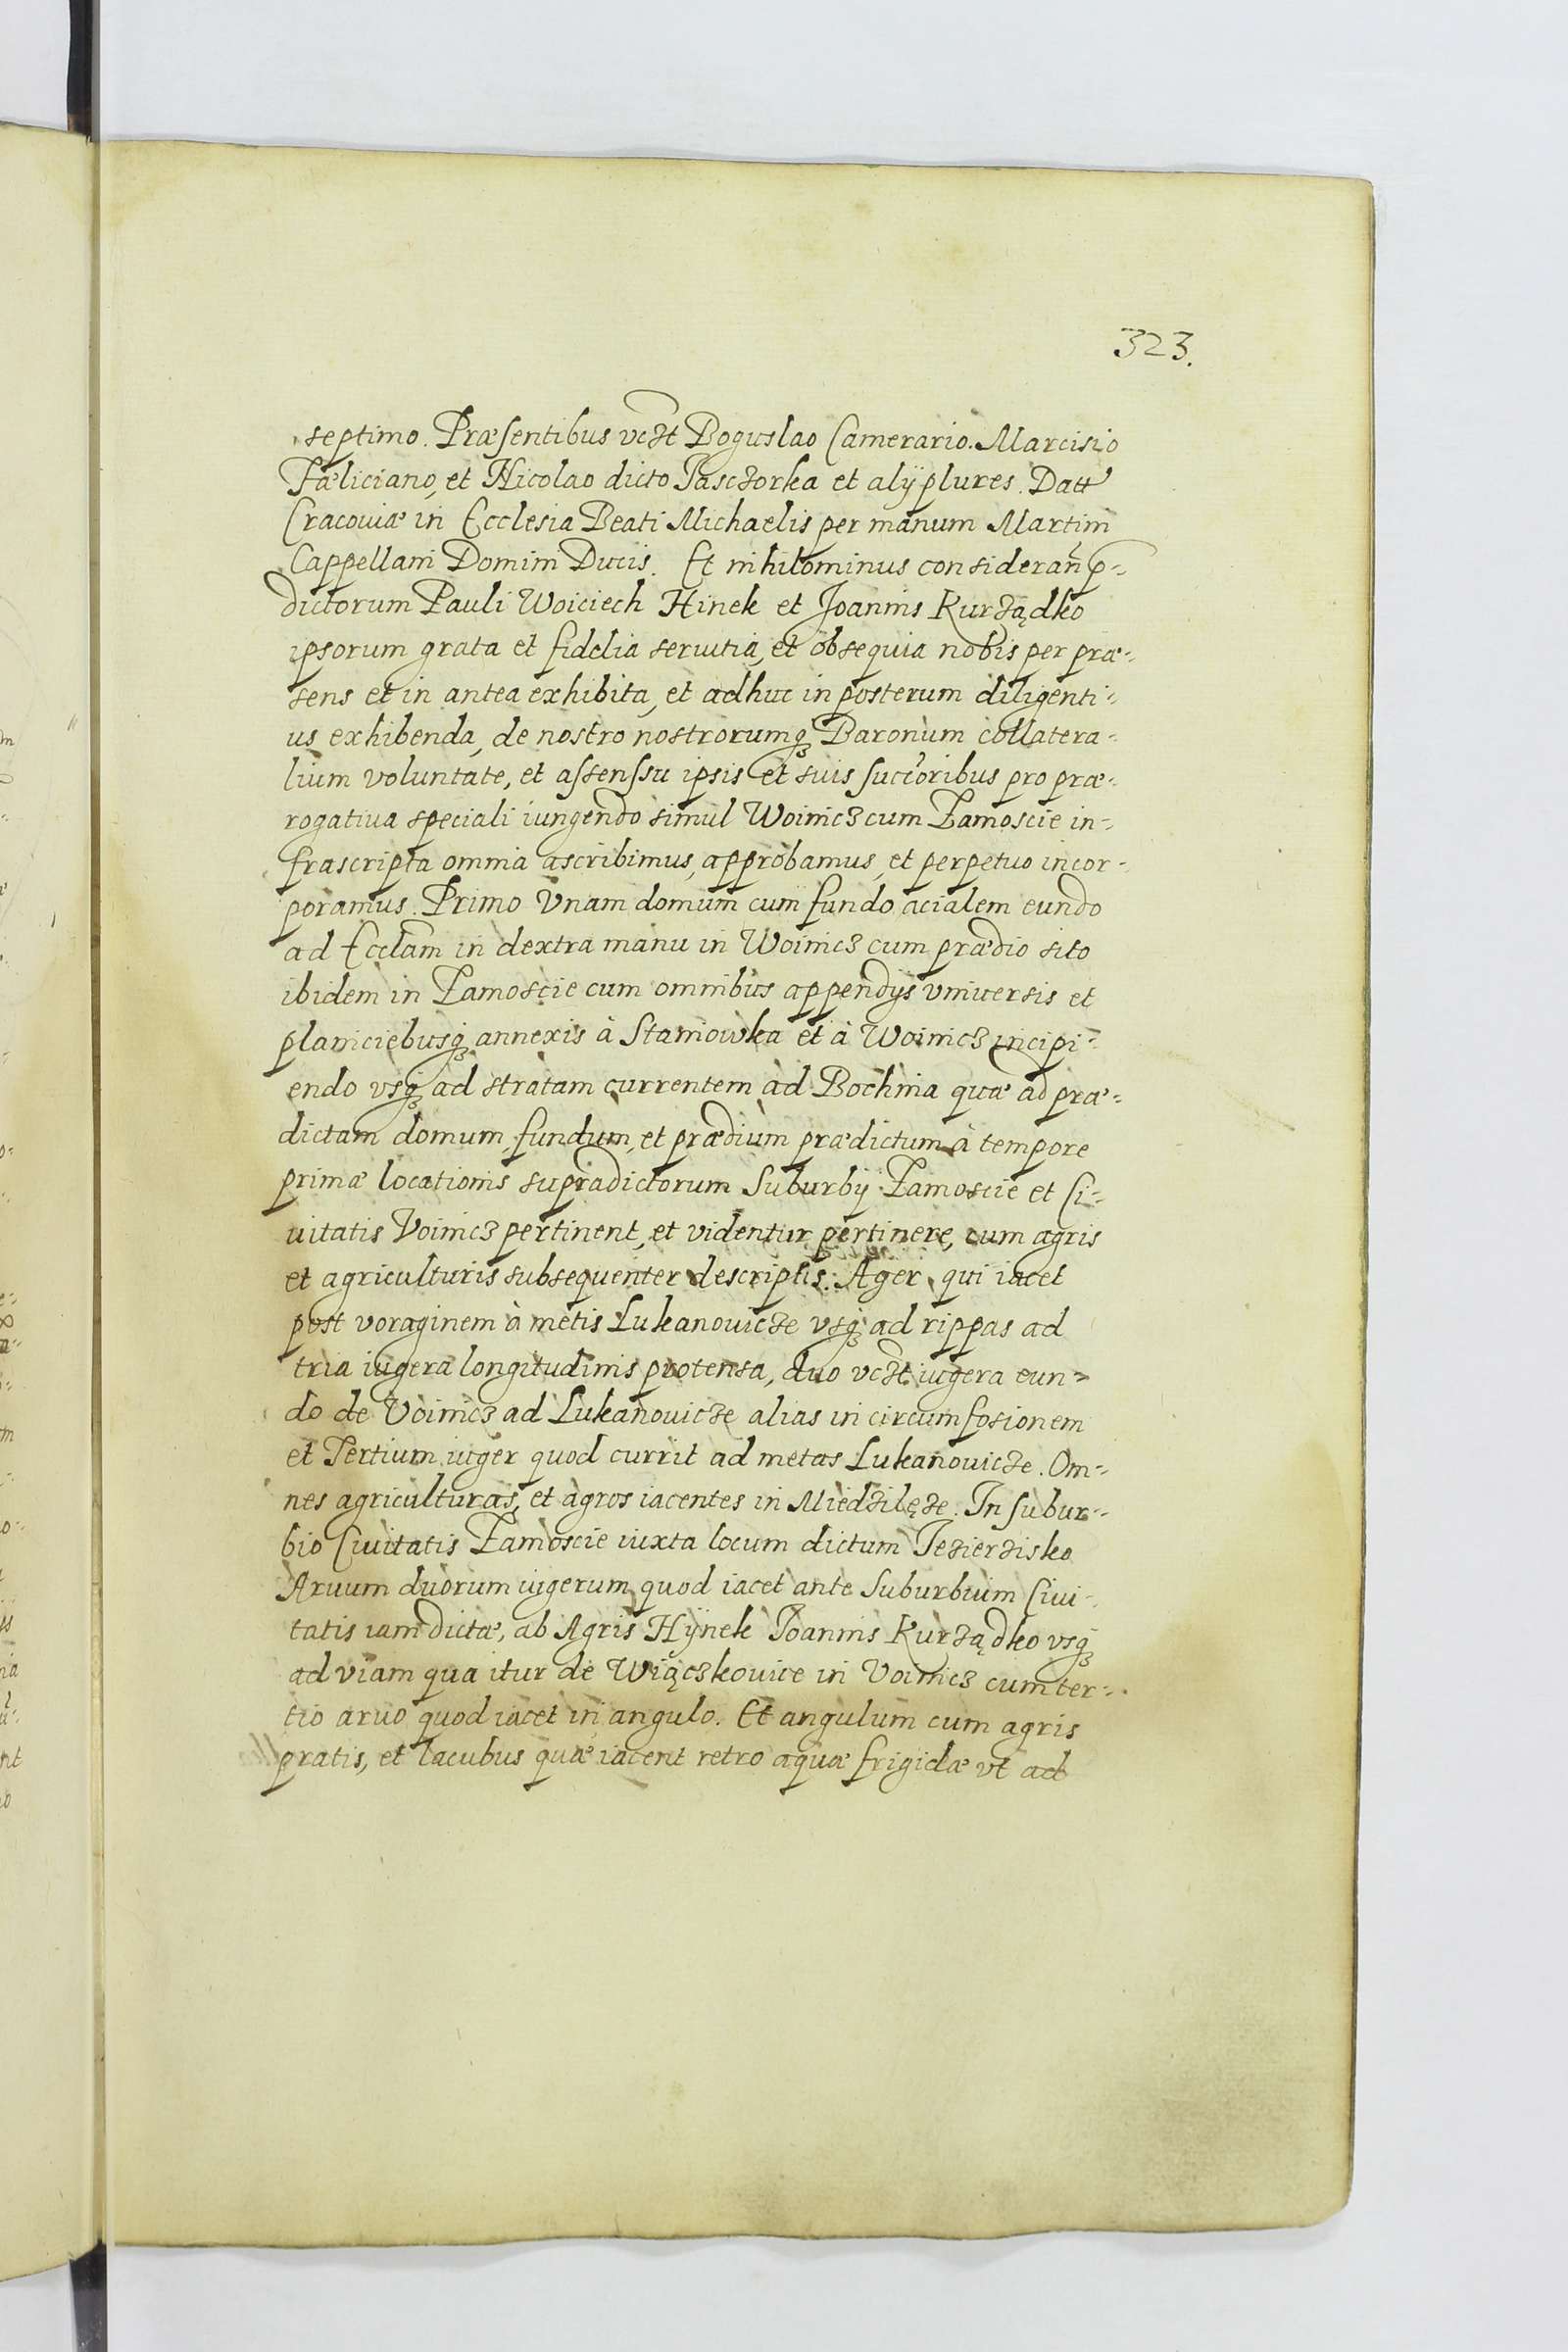 323.
septimo. Præsentibus vczt Boguslao Camerario. Marcisio
Fæliciano, et Nicolao dicto Pasczorka et alÿ plures. Datt
Cracouiæ in Ecclesia Beati Michaelis per manum Martini
Cappellani Domini Ducis. Et nihilominus consideran̄ p-
dictorum Pauli Woiciech Hinek et Joannis Kurządko
ipsorum grata et fidelia seruitia, et obsequia nobis per præ-
sens et in antea exhibita, et adhuc in posterum diligenti-
us exhibenda, de nostro nostrorumq3 Baronum collatera-
lium voluntate, et assenssu ipsis et suis succoribus pro præ-
rogatiua speciali iungendo simul Woinicz cum Zamoscie in-
frascripta omnia ascribimus, approbamus, et perpetuo incor-
poramus. Primo Vnam domum cum fundo acialem eundo
ad Ecclam in dextra manu in Woinicz cum prædio sito
ibidem in Zamoscie cum omnibus appendÿs vniuersis et
planiciebusq3 annexis à Staniowka et à Woinicz incipi-
endo vsq3 ad stratam currentem ad Bochnia quæ ad præ-
dictam domum, fundum, et prædium prædictum à tempore
primæ locationis supradictorum Suburbÿ Zamoscie et Ci-
uitatis Voinicz pertinent, et videntur pertinere, cum agris
et agriculturis subsequenter descriptis. Ager qui iacet
post voraginem à metis Lukanouicze vsq3 ad rippas ad
tria iugera longitudinis protensa, duo vczt iugera eun-
do de Voinicz ad Lukanouicze alias in circumfosionem
et Tertium iuger quod currit ad metas Lukanouicze. Om-
nes agriculturas, et agros iacentes in Miedzilęze. In subur-
bio Ciuitatis Zamoscie iuxta locum dictum Jezierzisko
Aruum duorum iugerum quod iacet ante Suburbium Ciui-
tatis iam dictæ, ab Agris Hÿnek Joannis Kurządko vsq3
ad viam qua itur de Wiączkouice in Voinicz cum ter-
tio aruo quod iacet in angulo. Et angulum cum agris
pratis, et lacubus quæ iacent retro aquæ frigidæ vt ad